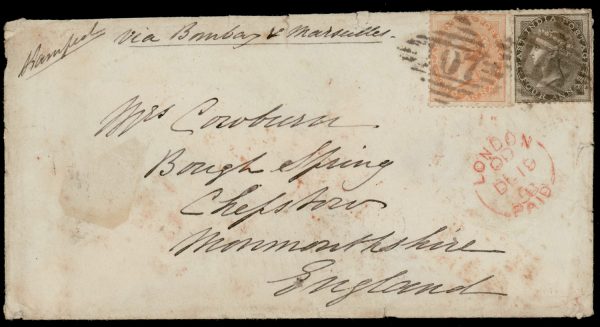 Stamped
via Bombay & Marseilles.
107
EAST INDIA
Mrs Cowburn
Bough Spring
Chepstow
Monmouthshire
England
LONDON
DE 19
PAID